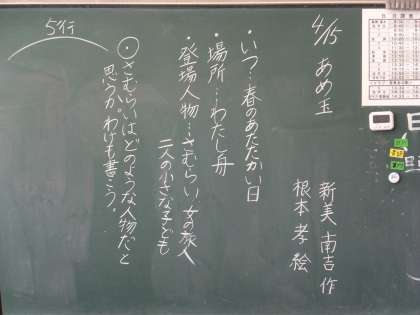 4/15 あめ玉
新美 南吉 作
根本 孝 絵
・いつ…春のあたたかい日
・場所…わたし舟
・登場人物…さむらい、女の旅人
二人の小さな子ども
⦿さむらいはどのような人物だと
思うか。わけも書こう。
5行